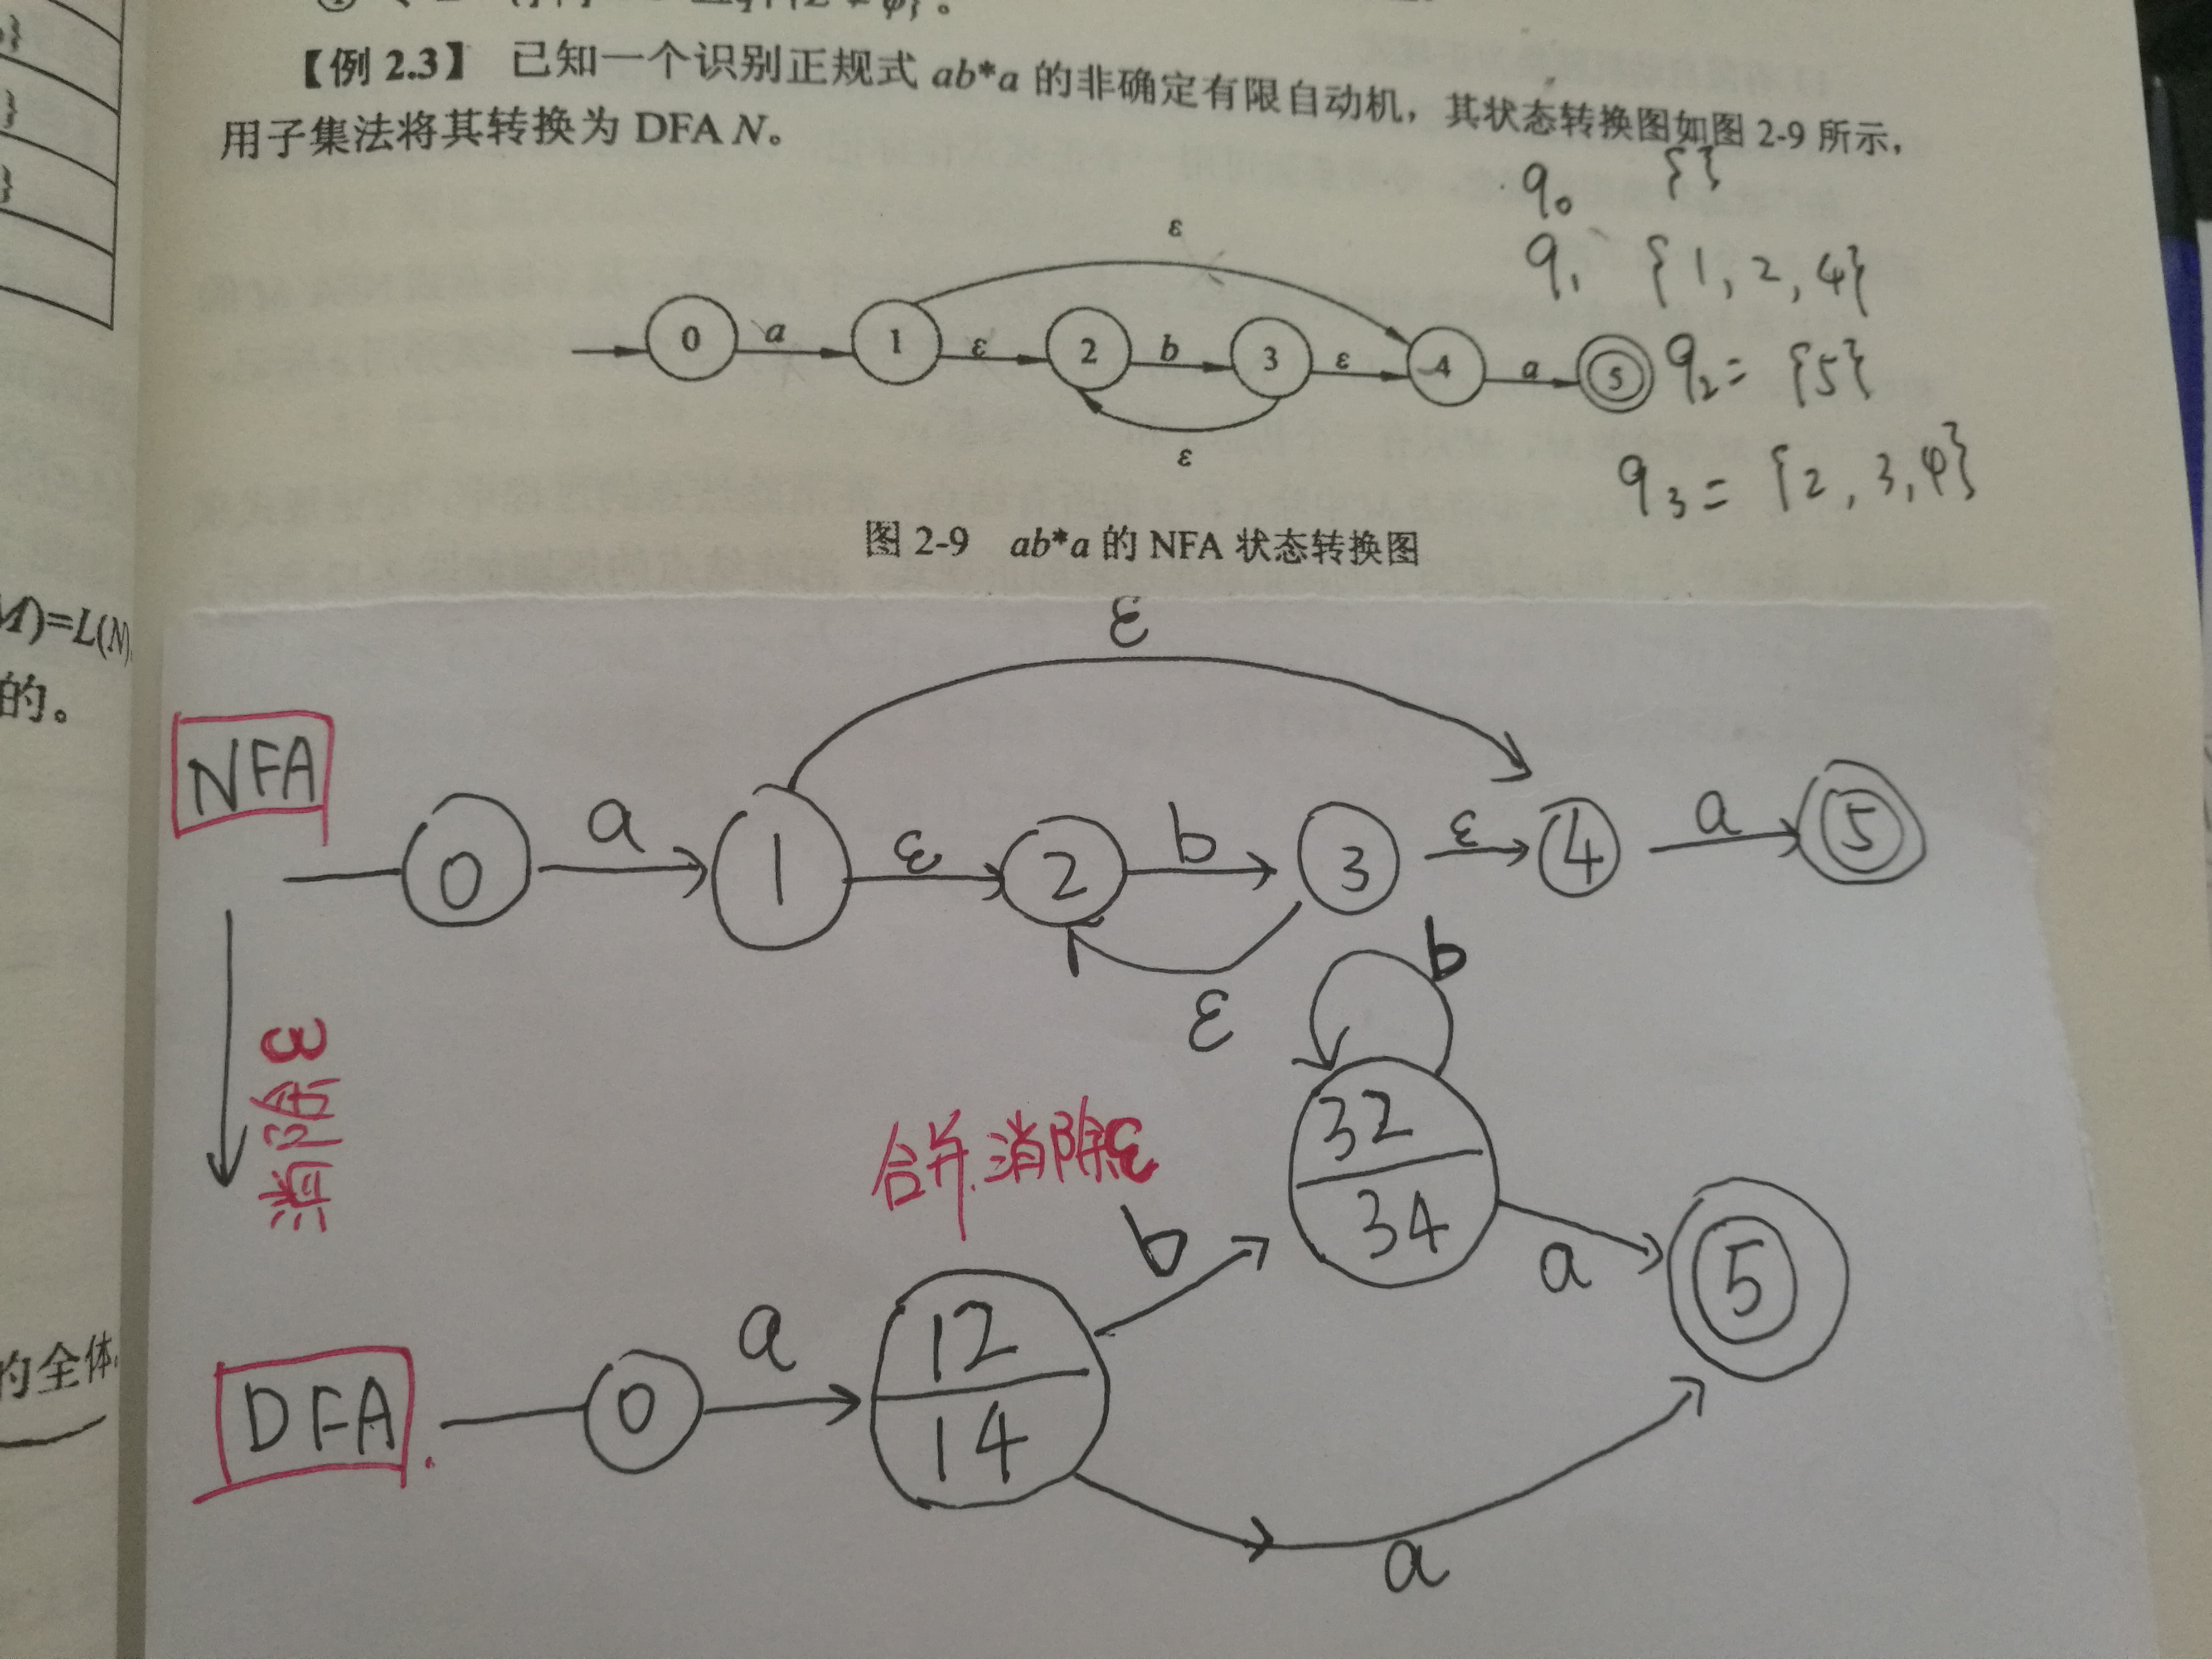 【例 2.3】 已知一个识别正规式 ab*a 的非确定有限自动机，其状态转换图如图 2-9 所示，
用子集法将其转换为 DFA N。
q₀ { }
q₁ {1, 2, 4}
ε
0 a 1 ε 2 b 3 ε 4 a 5
q₂ = {5}
ε
q₃ = {2, 3, 4}
图 2-9 ab*a 的 NFA 状态转换图
M)=L(N)
的。
ε
NFA
0 a 1 ε 2 b 3 ε 4 a 5
ε
消除ε
b
合并.消除ε
32
34
b
a
5
的全体
DFA.
0
a
12
14
a